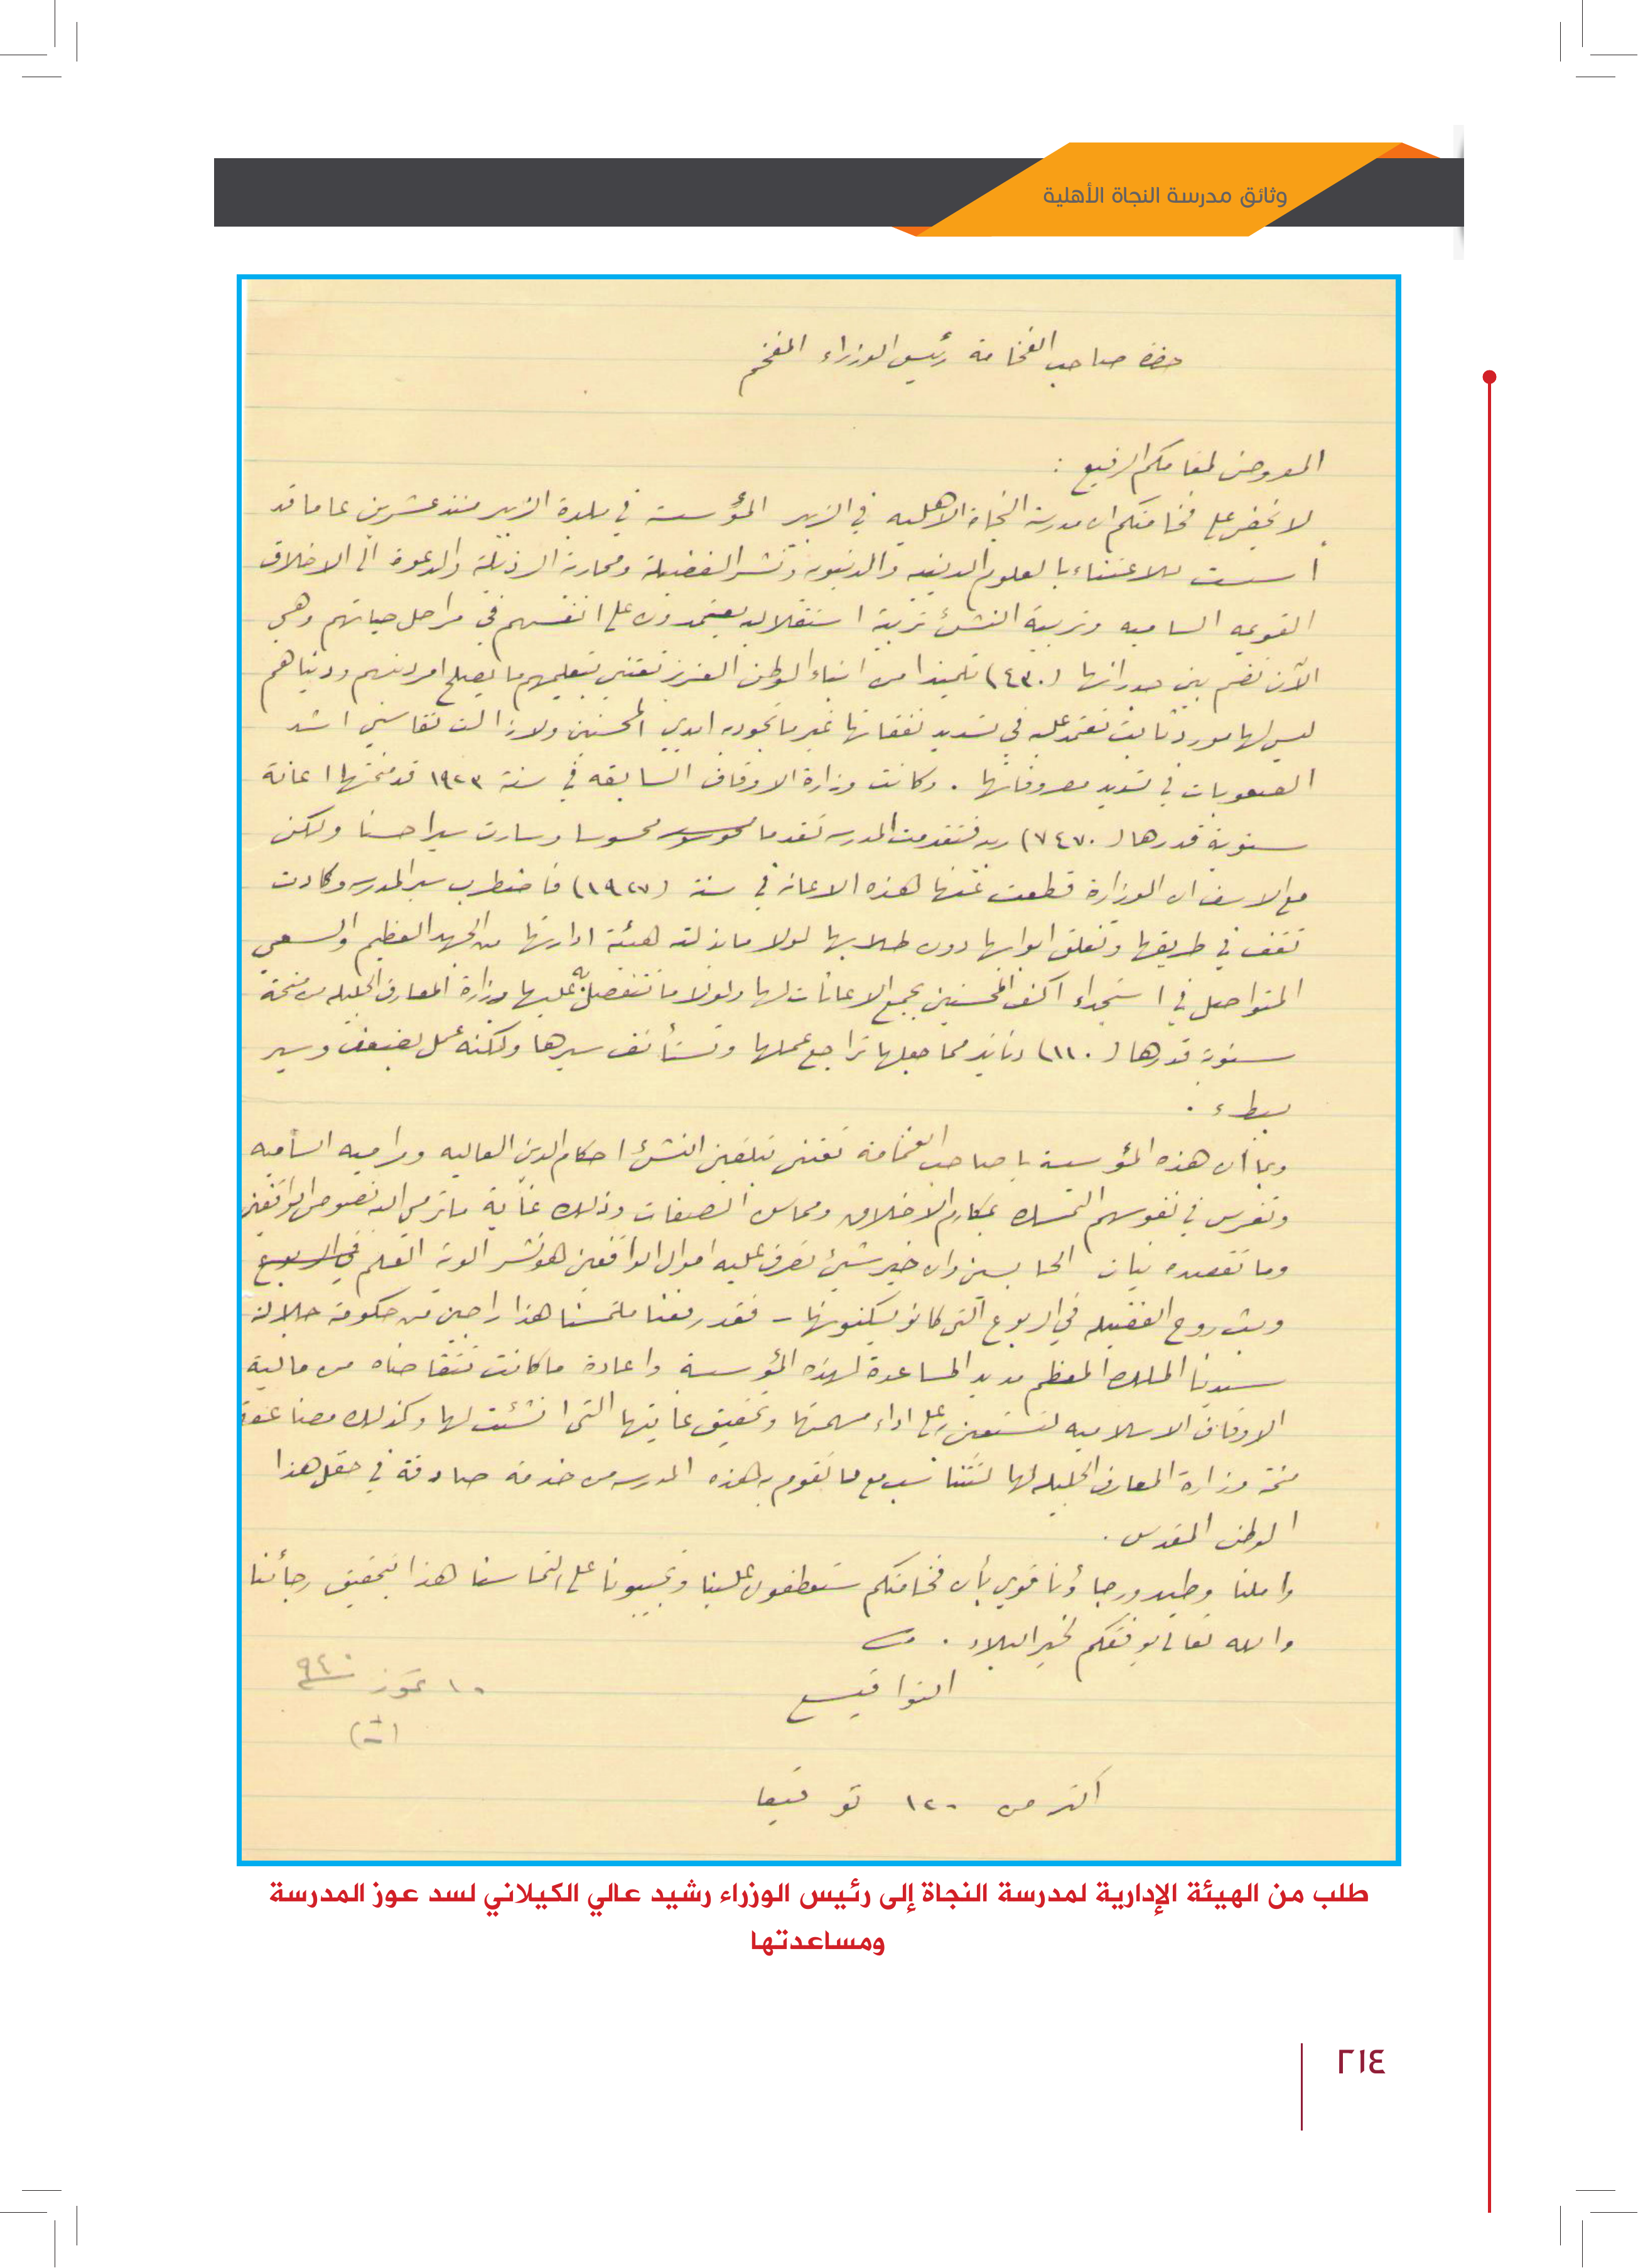 وثائق مدرسة النجاة الأهلية
حضرة صاحب الفخامة رئيس الوزراء المفخم
المعروض لمقامكم الرفيع :
لا يخفى على فخامتكم ان مدرسة النجاة الاهليه في الزبير المؤسسة في بلدة الزبير منذ عشرين عاما قد
اسست للاعتناء بالعلوم الدينيه والدنيويه ونشر الفضيلة ومحاربة الرذيلة والدعوة الى الاخلاق
القويمه الساميه وتربية النشئ تربية استقلاليه يعتمدون على انفسهم في مراحل حياتهم وهي
الآن تضم بين جدرانها (٤٣٠) تلميذا من ابناء الوطن العزيز تعتني بتعليمهم ما يصلح امر دينهم ودنياهم
ليس لها مورد ثابت تعتمد عليه في تسديد نفقاتها غير ما تجود به ايدي المحسنين ولا زالت تقاسي اشد
الصعوبات في تسديد مصروفاتها . وكانت وزارة الاوقاف السابقه في سنة ١٩٢٣ قد منحتها اعانة
سنوية قدرها (٧٤٧٠) ربيه فتقدمت المدرسه تقدما محسوسا وسارت سيرا حسنا ولكن
مع الاسف ان الوزارة قطعت عنها هذه الاعانه في سنة (١٩٢٧) فاضطرب سير المدرسه وكادت
تقف في طريقها وتغلق ابوابها دون طلابها لولا ما بذلته هيئة ادارتها من الجهد العظيم والسعي
المتواصل في استجداء اكف المحسنين بجمع الاعانات لها ولولا ما تتفضل به عليها وزارة المعارف الجليله من منحة
سنوية قدرها (١١٠) دنانير مما جعلها تراجع عملها وتستأنف سيرها ولكنه عمل بضعف وسير
ببطء .
وبما أن هذه المؤسسة يا صاحب الفخامة تعتني بتلقين النشئ احكام الدين العاليه ومراميه الساميه
وتغرس في نفوسهم التمسك بمكارم الاخلاق ومحاسن الصفات وذلك غاية ما ترمي اليه نصوص الواقفين
وما تقصده نيات الحابسين وان خير شيئ تصرف عليه اموال الواقفين هو نشر الوية العلم في الربوع
وبث روح الفضيله في الربوع التي كانو يسكنونها - فقد رفعنا ملتمسنا هذا راجين من حكومة جلالة
سيدنا الملك المعظم مد يد المساعدة لهذه المؤسسة واعادة ما كانت تتقاضاه من مالية
الاوقاف الاسلاميه لتستعين به على اداء مهمتها وتحقيق غايتها التي انشئت لها وكذلك مضاعفة
منحة وزارة المعارف الجليله لها لتتناسب مع ما تقوم به هذه المدرسه من خدمة صادقة في حقل هذا
الوطن المقدس .
واملنا وطيد ورجاؤنا قوي بأن فخامتكم ستعطفون علينا وتجيبونا على التماسنا هذا بتحقيق رجائنا
والله تعالى يوفقكم لخير البلاد .
التواقيع
١٠ تموز ٩٤٠
أكثر من ١٢٠ توقيعا
طلب من الهيئة الإدارية لمدرسة النجاة إلى رئيس الوزراء رشيد عالي الكيلاني لسد عوز المدرسة
ومساعدتها
٢١٤